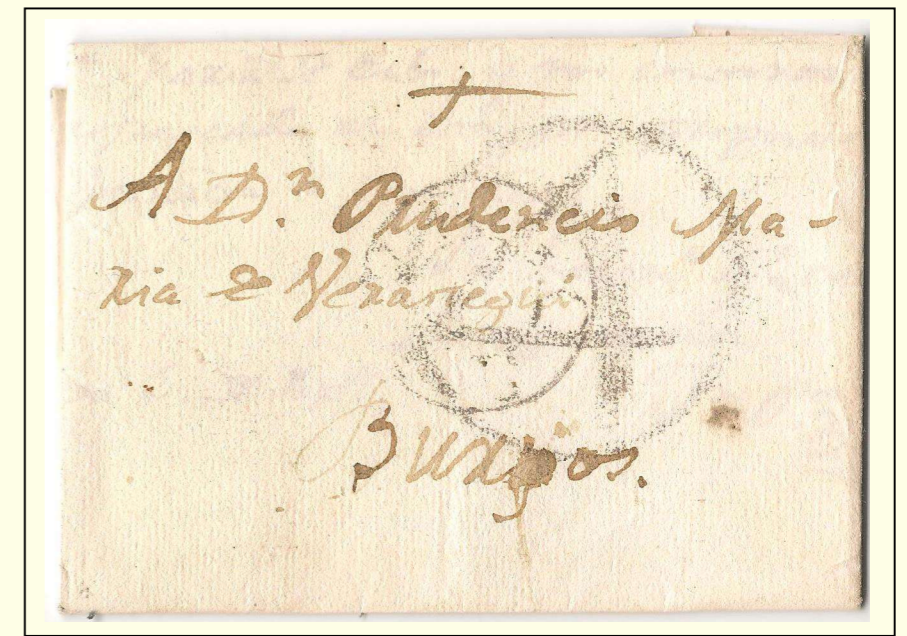 A D.n Prudencio Ma-
ria de Verastegui
Burgos.
4